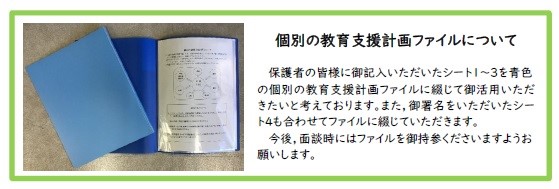 個別の教育支援計画ファイルについて
　保護者の皆様に御記入いただいたシート1～3を青色
の個別の教育支援計画ファイルに綴じて御活用いただ
きたいと考えております。また，御署名をいただいたシー
ト4も合わせてファイルに綴じていただきます。
　今後，面談時にはファイルを御持参くださいますようお
願いします。